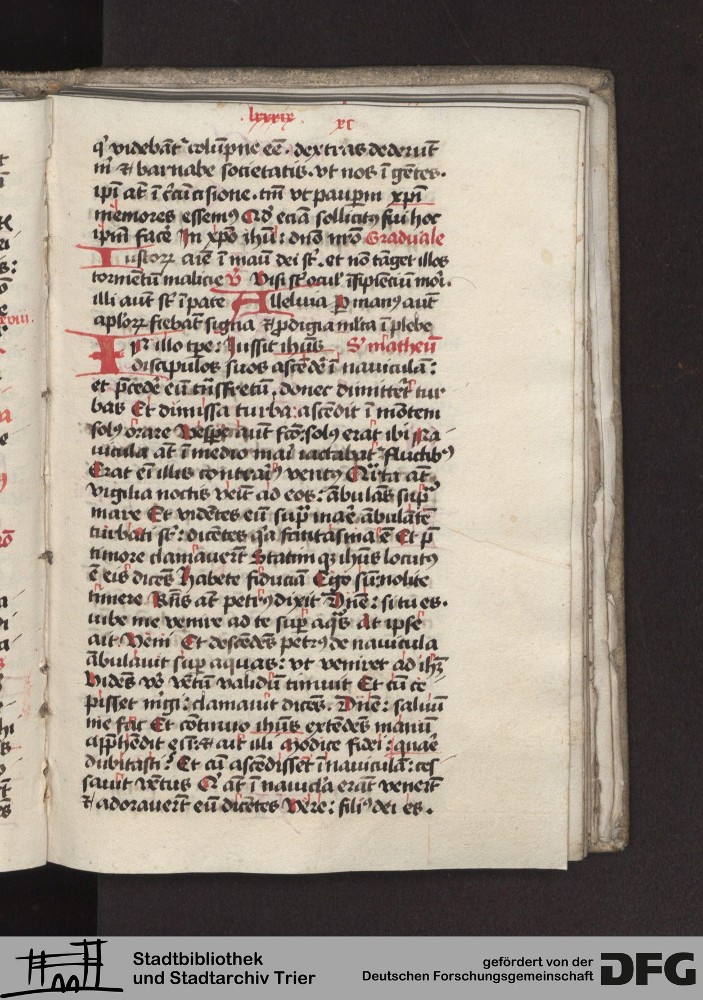 lxxxix xc
q᷑ videbāt᷑ colūpne eē. dextras dederūt
m͛ ⁊ barnabe societatis. vt nos ī gētes.
ip̄i āt ī c͛cūcisione. tm̄ vt paupm̄ xp̄i
memores essemꝰ Qd̕ eciā sollicitꝰ fui hoc
ip̄m face͛ In xp̄o ih̄u: dn̄o nr̄o Graduale
Iustoꝝ aīe ī manū dei st̄. et nō tāget illos
tormētū malicie V̕ Visi st̄ ocul̕ īsipiētiū mori.
illi aūt st̄ ī pace Alleluia P manꝰ aūt
ap̄loꝝ fiebāt signa ⁊ ꝓdigia ml̄ta ī plebe
In illo tp̄e: Iussit ih̄us S᷑ matheū
discipulos suos ascēde͛ ī naviculā:
et p̄cede͛ eū trn̄sfretū. donec dimitte͛t tur
bas Et dimissa turba: ascēdit ī mōtem
solꝰ orare Vespe͛ aūt fc̄o: solꝰ erat ibi Na
uicula āt ī medio mai͛ iactabat᷑ fluctibꝰ
Erat eī illis contrariꝰ ventꝰ Qr̄ta āt
vigilia noctis vēit ad eos: ābulās sup᷑
mare Et vidētes eū sup᷑ mae͛ ābulātē
turbati st̄: dicētes qꝛ fantasma ē Et p̄
timore clamauerūt Statim qꝫ ih̄us locutꝰ
ē eis dicēs Habete fiduciā Ego sū: nolite
timere Rn̄s āt petrꝰ dixit Dn̄e: si tu es.
iube me venire ad te sup᷑ aq̄s At ipse
ait Veni Et descēdēs petrꝰ de navicula
ābulauit sup᷑ aquas: vt veniret ad ih̄ꝫ
Vidēs vo᷑ vētū validū timuit Et cū ce
pisset m͛gi: clamauit dicēs. Dn̄e: saluū
me fac Et cōtinuo ih̄us extēdēs manū
app᷑hēdit eū: ⁊ ait illi Modice fidei: quae͛
dubitasti? Et cū ascēdisset ī naviculā: ces
sauit vētus Q᷑ āt ī navicl̄a erāt venert̄
⁊ adoraverūt eū dicētes Vere: filiꝰ dei es.
Stadtbibliothek
und Stadtarchiv Trier
gefördert von der
Deutschen Forschungsgemeinschaft
DFG